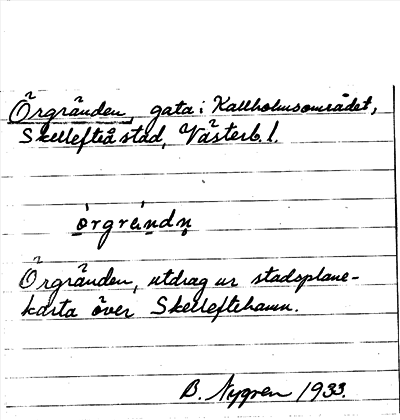 Örgränden, gata i Kallholmsområdet,
Skellefteå stad, Västerb. l.
örgrändn
Örgränden, utdrag ur stadsplane-
karta över Skelleftehamn.
B. Nygren 1933.